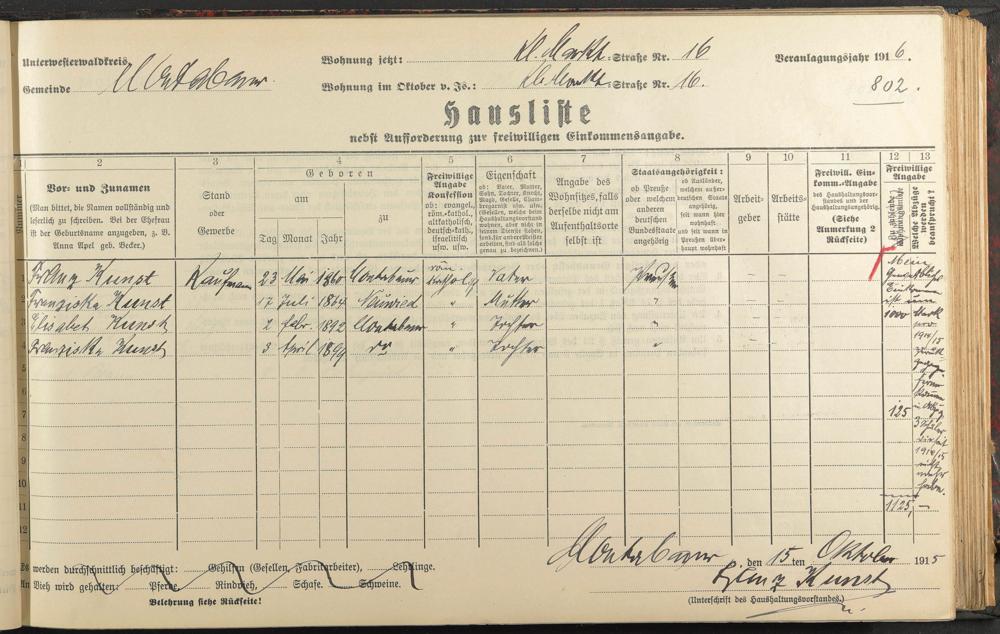 Unterwesterwaldkreis
Gemeinde Montabaur
Wohnung jetzt: Kl. Markt Straße Nr. 16
Wohnung im Oktober v. Js.: Kl. Markt Straße Nr. 16.
Veranlagungsjahr 1916.
802.
Hausliste
nebst Aufforderung zur freiwilligen Einkommensangabe.
1 2 3 4 5 6 7 8 9 10 11 12 13
Nummer
Vor- und Zunamen
(Man bittet, die Namen vollständig und
leserlich zu schreiben. Bei der Ehefrau
ist der Geburtsname anzugeben, z. B.
Anna Apel geb. Becker.)
Stand
oder
Gewerbe
Geboren
am
zu
Tag Monat Jahr
Freiwillige
Angabe
Konfession
ob: evangel.,
röm.-kathol.,
altkatholisch,
deutsch-kath.,
israelitisch
usw. usw.
Eigenschaft
ob: Vater, Mutter,
Sohn, Tochter, Knecht,
Magd, Geselle,
Angabe des
Wohnsitzes, falls
derselbe nicht am
Aufenthaltsorte
selbst ist
Staatsangehörigkeit:
ob Preuße
oder welchem
anderen
deutschen
Bundesstaate
angehörig
ob Ausländer,
welchem außer-
deutschen Staate
angehörig,
seit wann hier
wohnhaft
und seit wann in
Preußen über-
haupt wohnhaft
Arbeit-
geber
Arbeits-
stätte
Freiwill. Ein-
komm.-Angabe
des Haushaltungsvor-
standes und der
Haushaltungsangehörig.
(Siehe
Anmerkung 2
Rückseite)
Freiwillige
Angabe
Welche Abzüge
werden
beansprucht?
1 Franz Kunst Kaufmann 23 Mai 1860 Montabaur röm. kathol. Vater Preuße
2 Franziska Kunst 17 Juli 1864 Neuwied " Mutter "
3 Elisabet Kunst 2 Febr. 1892 Montabaur " Tochter "
4 Franziska Kunst 3 April 1899 do " Tochter "
5
6
7
8
9
10
11
12
Mein
ist um
1000 Mark
pro
1914/15
125
3 Schüler
1914/15
nicht
mehr
1125,—
Es werden durchschnittlich beschäftigt: Gehilfen (Gesellen, Fabrikarbeiter), Lehrlinge.
An Vieh wird gehalten: Pferde. Rindvieh, Schafe. Schweine.
Belehrung siehe Rückseite!
Montabaur, den 15ten Oktober 1915
Franz Kunst
(Unterschrift des Haushaltungsvorstandes.)